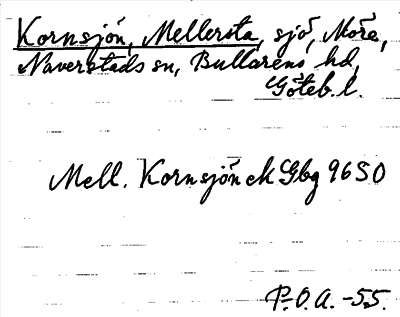 Kornsjön, Mellersta, sjö, Möre,
Naverstads sn, Bullarens hd,
Göteb. l.
Mell. Kornsjön ek Gbg 9650
P.O.A. -55.